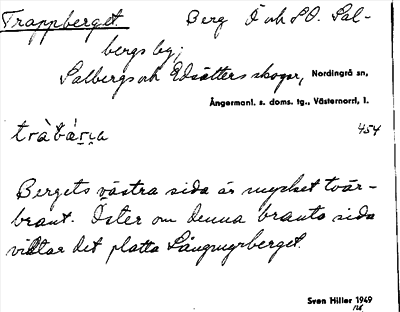 Trappberget. Berg Ö och SO. Sal-
bergs by;
Salbergs och Edsätters skogar, Nordingrå sn,
Ångermanl. s. doms. tg., Västernorrl. l.
454
Bergets västra sida är mycket tvär-
brant. Öster om denna branta sida
vidtar det platta Långmyrberget.
Sven Hiller 1949